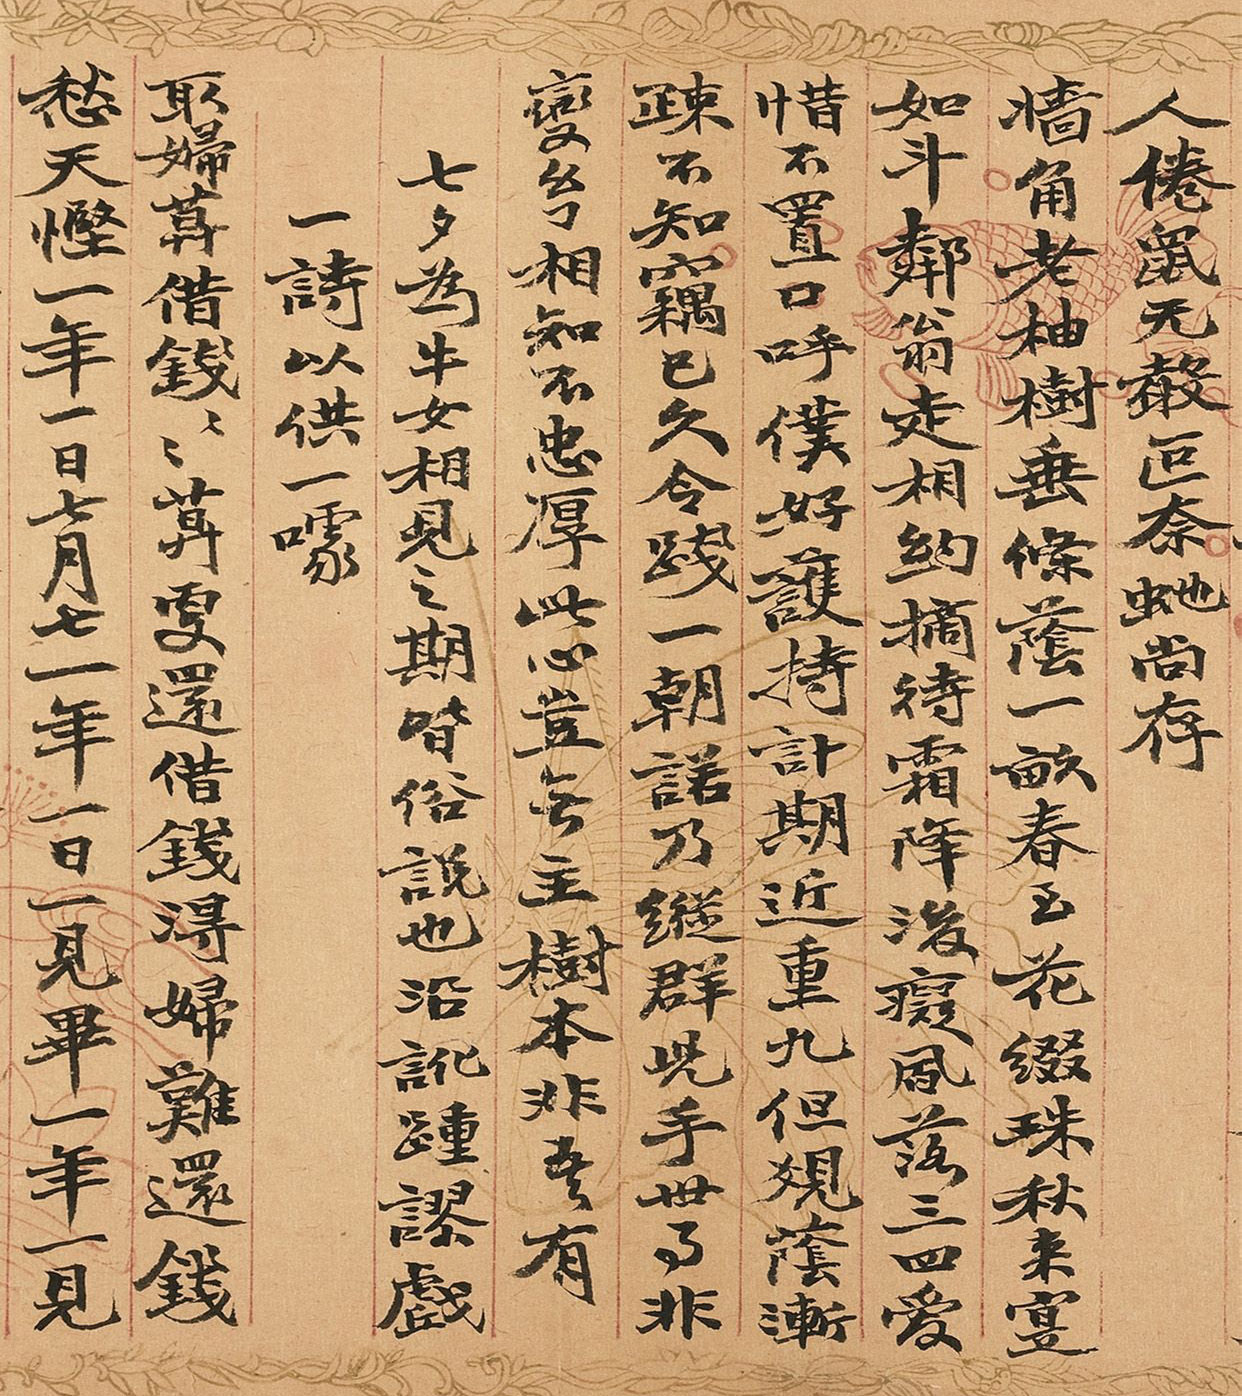 人倦鼠无聲叵奈虵尚存
墙角老柚樹垂條蔭一畝春玉花綴珠秋来寔
如斗鄰翁走相約摘待霜降後癡風落三四愛
惜不置口呼僕好護持計期近重九但覌蔭漸
疎不知竊已久令踐一朝諾乃縱群児手世事非
變兮相知不忠厚此心豈無主樹本非吾有
七夕為牛女相見之期皆俗説也沿訛踵謬戲
一詩以供一噱
耴婦借錢〻〻還借錢得婦難還錢
愁天慳一年一日七月七一年一日一見畢一年一見